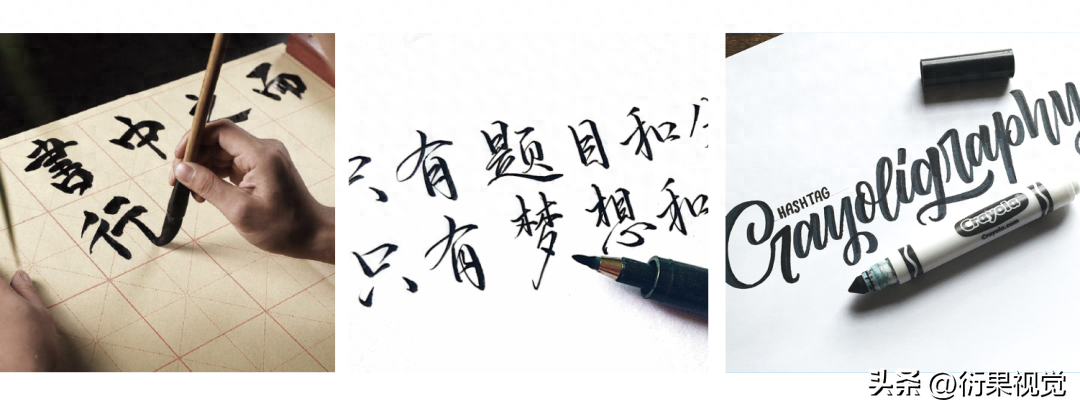 書中
行
只有题目和
只有梦想和
HASHTAG
Crayoligraphy
Crayola
Crayola.com
头条 @衍果视觉